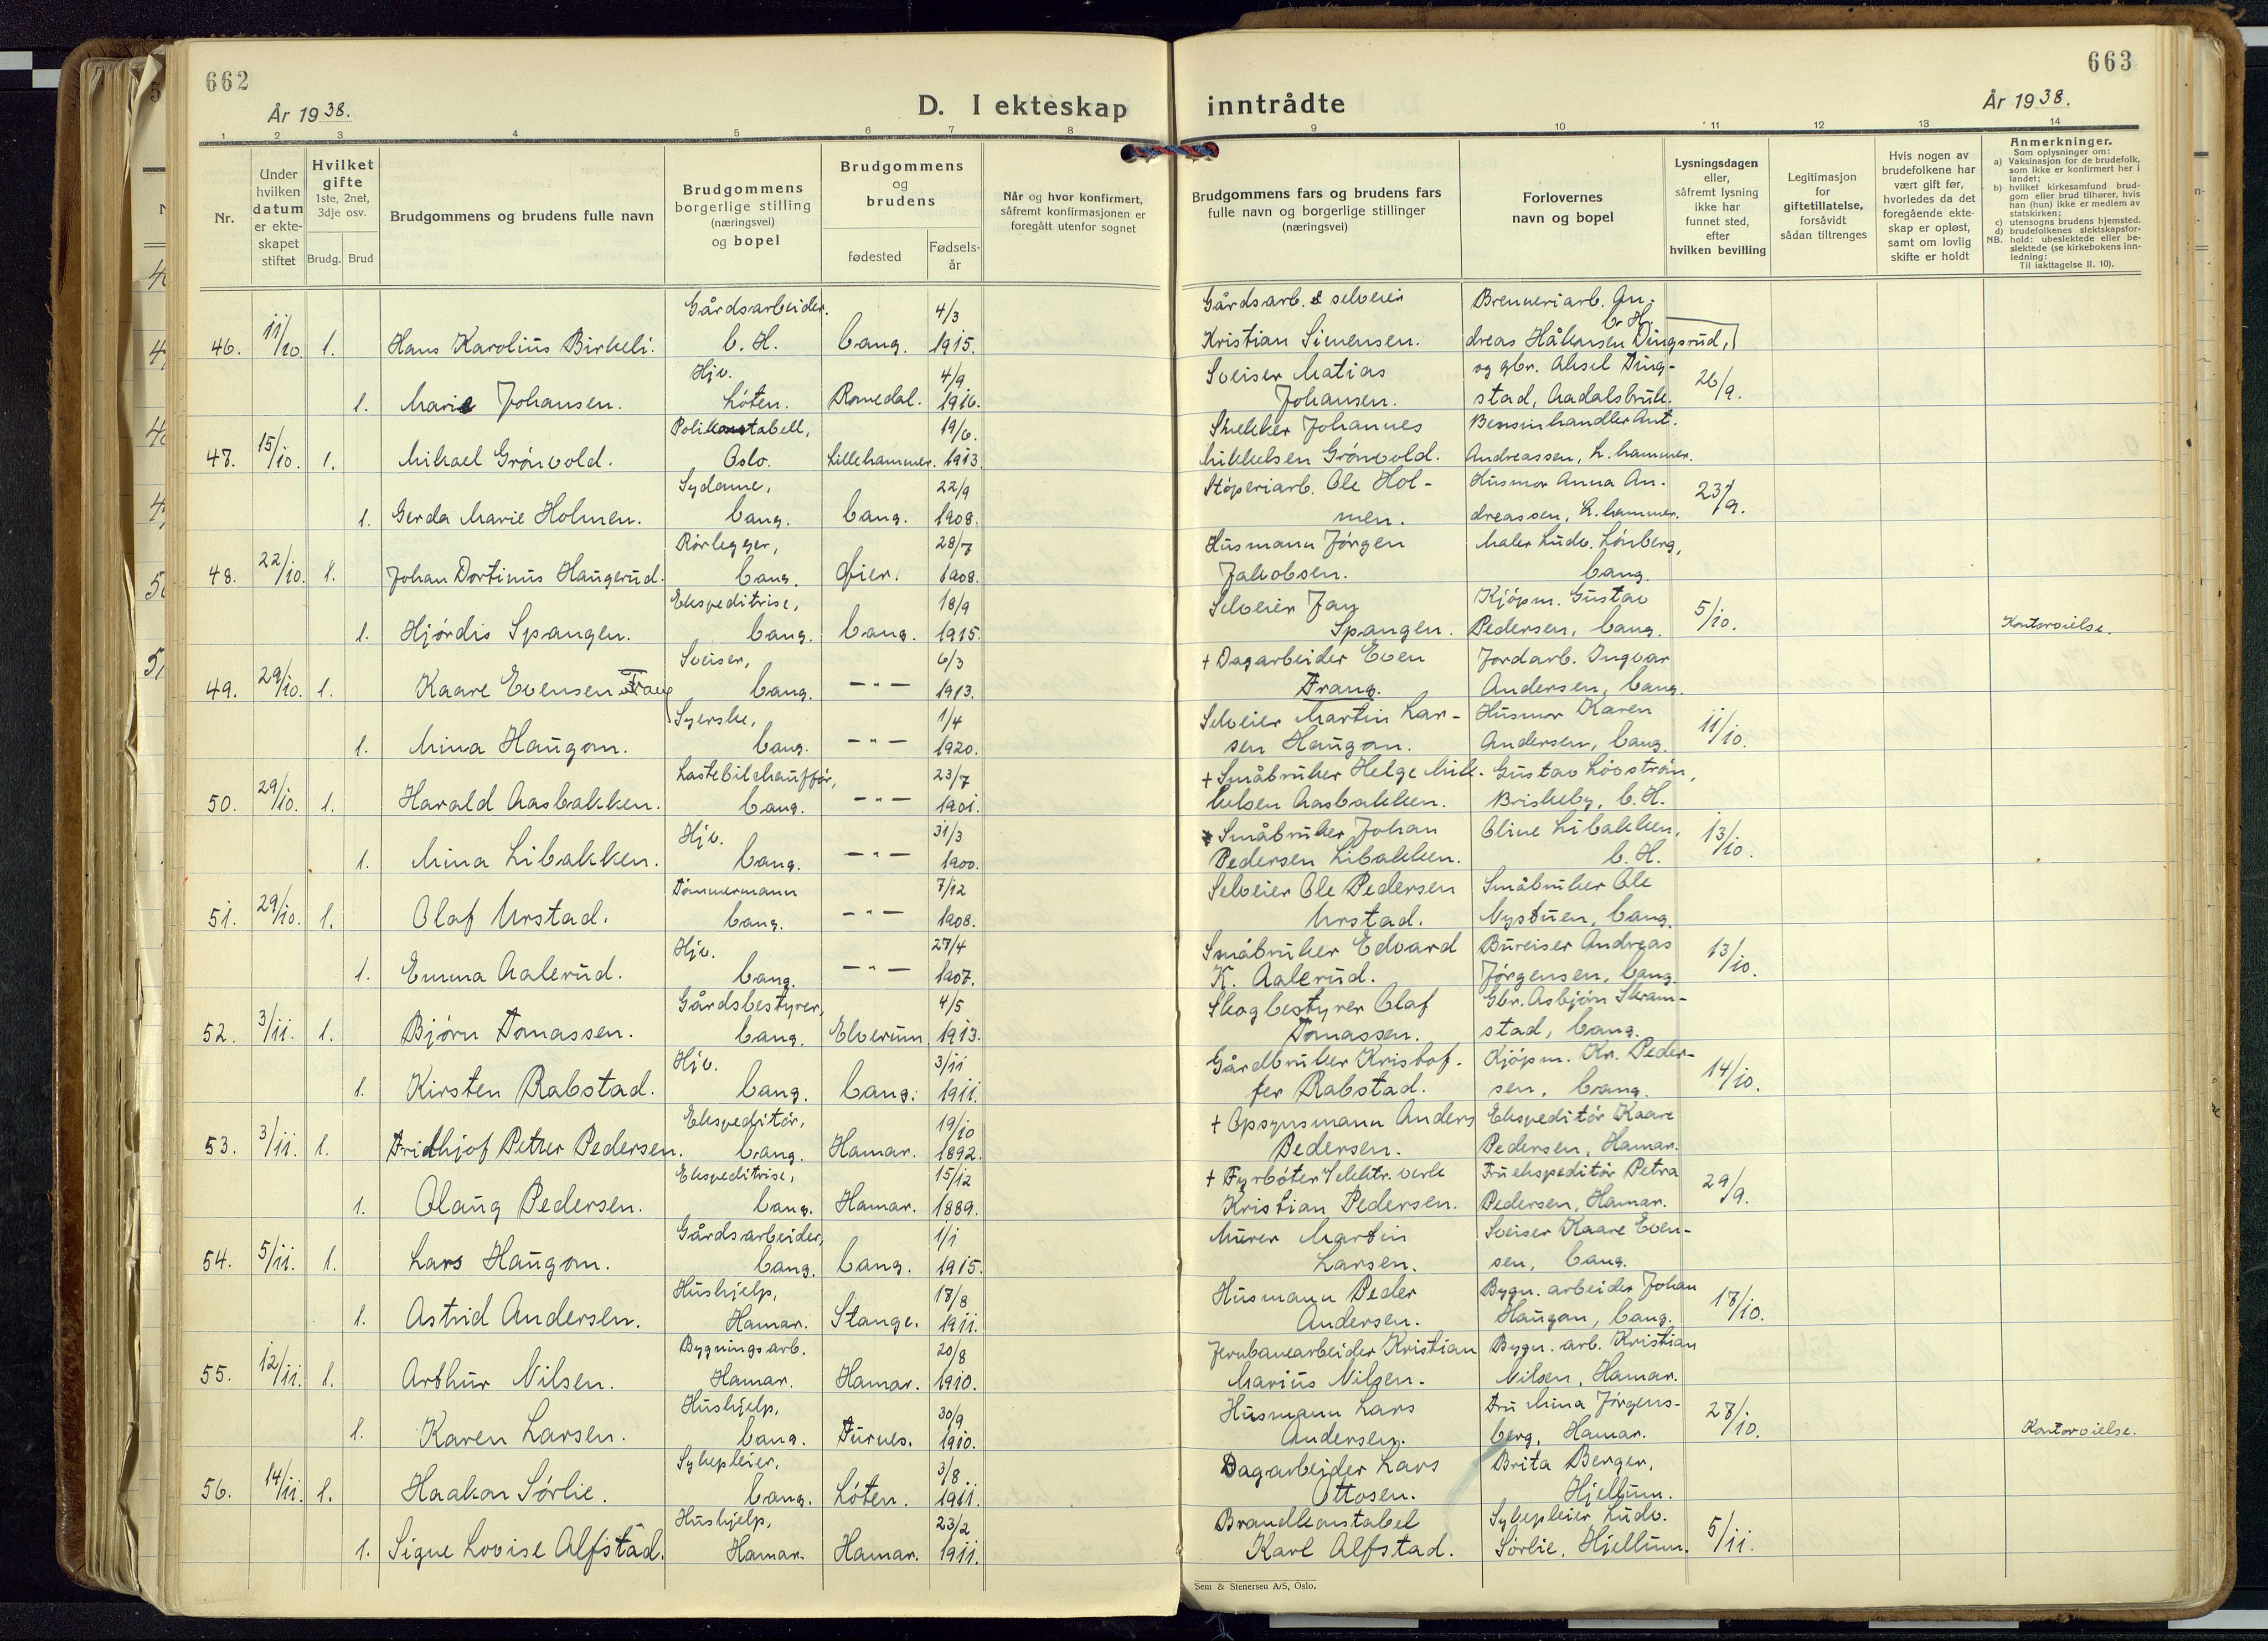 662
663
År 1938.
D. I ekteskap inntrådte
År 1938.
1 2 3 4 5 6 7 8 9 10 11 12 13 14
Nr.
Under hvilken datum er ekteskapet stiftet
Hvilket gifte 1ste, 2net, 3dje osv.
Brudg. Brud
Brudgommens og brudens fulle navn
Brudgommens borgerlige stilling (næringsvei) og bopel
Brudgommens og brudens
fødested
Fødselsår
Når og hvor konfirmert, såfremt konfirmasjonen er foregått utenfor sognet
Brudgommens fars og brudens fars fulle navn og borgerlige stillinger (næringsvei)
Forlovernes navn og bopel
Lysningsdagen eller, såfremt lysning ikke har funnet sted, efter hvilken bevilling
Legitimasjon for giftetillatelse, forsåvidt sådan tiltrenges
Hvis nogen av brudefolkene har vært gift før, hvorledes da det foregående ekteskap er opløst, samt om lovlig skifte er holdt
Anmerkninger.
Som oplysninger om:
a) Vaksinasjon for de brudefolk, som ikke er konfirmert her i landet;
b) hvilket kirkesamfund brudgom eller brud tilhører, hvis han (hun) ikke er medlem av statskirken;
c) utensogns brudens hjemsted.
d) brudefolkenes slektskapsforhold: ubeslektede eller beslektede (se kirkebokens innledning:
NB.
Til iakttagelse II. 10).
46. 11/10 1. Hans Karolius Birkeli. Gårdsarbeider. V. H. Vang. 4/3 1915. Gårdsarb. & selveier Kristian Simensen. Brenneriarb. Andreas Håkensen Dingsrud, V. H.
1. Marie Johansen. Hjv. Løten. Romedal. 4/9 1916. Sveiser Matias Johansen. og gbr. Aksel Dingstad, Aadalsbruk. 26/9.
47. 15/10. 1. Mikael Grönvold. Politikonstabell, Oslo. Lillehammer. 19/6. 1913. Snekker Johannes Mikkelsen Grönvold. Bensinhandler Ant. Andreassen, L.hammer.
1. Gerda Marie Holmen. Sydame, Vang. Vang. 22/9 1908. Støperiarb. Ole Holmen. Husmor Anna Andreassen, L.hammer. 23/9.
48. 22/10. 1. Johan Dortinus Haugerud. Rørlegger, Vang. Øier. 28/7 1908. Husmann Jørgen Jakobsen. Maler Ludv. Lönberg, Vang.
1. Hjørdis Spangen. Ekspeditrise, Vang. Vang. 18/9 1915. Selveier Jan Spangen. Kjøpm. Gustav Pedersen, Vang. 5/10. Kontorvielse.
49. 29/10. 1. Kaare Evensen Frang Sveiser, Vang. — " — 6/3 1913. + Dagarbeider Even Frang. Jordarb. Ingvar Andersen, Vang.
1. Mina Haugom. Syerske, Vang. — " — 1/4 1920. Selveier Martin Larsen Haugom. Husmor Karen Andersen, Vang. 11/10.
50. 29/10. 1. Harald Aasbakken. Lastebilchauffør, Vang. — " — 23/7 1901. + Småbruker Helge Mikkelsen Aasbakken. Gustav Lövström, Briskeby, V. H.
1. Mina Libakken. Hjv. Vang. — " — 31/3 1900. Småbruker Johan Pedersen Libakken. Oline Libakken, V. H. 13/10.
51. 29/10. 1. Olaf Urstad. Tømmermann Vang. — " — 7/12 1908. Selveier Ole Pedersen Urstad. Småbruker Ole Nystuen, Vang.
1. Emma Aalerud. Hjv. Vang. — " — 27/4 1907. Småbruker Edvard K. Aalerud. Bureiser Andreas Jørgensen, Vang. 13/10.
52. 3/11. 1. Bjørn Tomassen. Gårdsbestyrer, Vang. Elverum 4/5 1913. Skogbestyrer Olaf Tomassen. Gbr. Asbjørn Skramstad, Vang.
1. Kirsten Rabstad. Hjv. Vang. Vang. 3/11 1911. Gårdbruker Kristoffer Rabstad. Kjøpm. Kr. Pedersen, Vang. 14/10.
53. 3/11. 1. Fridhjof Petter Pedersen. Ekspeditør, Vang. Hamar. 19/10 1892. + Opsynsmann Anders Pedersen. Ekspeditør Kaare Pedersen, Hamar.
1. Olaug Pedersen. Ekspeditrise, Vang. Hamar. 15/12 1889. + Fyrbøter v/elektr. verk Kristian Pedersen. Fru ekspeditør Petra Pedersen, Hamar. 29/9.
54. 5/11. 1. Lars Haugom. Gårdsarbeider, Vang. Vang. 1/1 1915. Murer Martin Larsen. Sveiser Kaare Evensen, Vang.
1. Astrid Andersen. Hushjelp, Hamar. Stange. 17/8 1911. Husmann Peder Andersen. Bygn. arbeider Johan Haugom, Vang. 17/10.
55. 12/11. 1. Arthur Nilsen. Bygningsarb. Hamar. Hamar. 20/8 1910. Jernbanearbeider Kristian Marius Nilsen. Bygn. arb. Kristian Nilsen, Hamar.
1. Karen Larsen. Hushjelp, Vang. Furnes. 30/9 1910. Husmann Lars Andersen. Fru Mina Jørgensberg, Hamar. 27/10. Kontorvielse.
56. 14/11. 1. Haakon Sørlie. Sykepleier, Vang. Løten. 3/8. 1911. Dagarbeider Lars Ottosen. Brita Berger, Hjellum.
1. Signe Lovise Alfstad. Hushjelp, Hamar. Hamar. 23/2 1911. Brandkonstabel Karl Alfstad. Sykepleier Ludv. Sørlie, Hjellum. 5/11.
Sem & Stenersen A/S, Oslo.